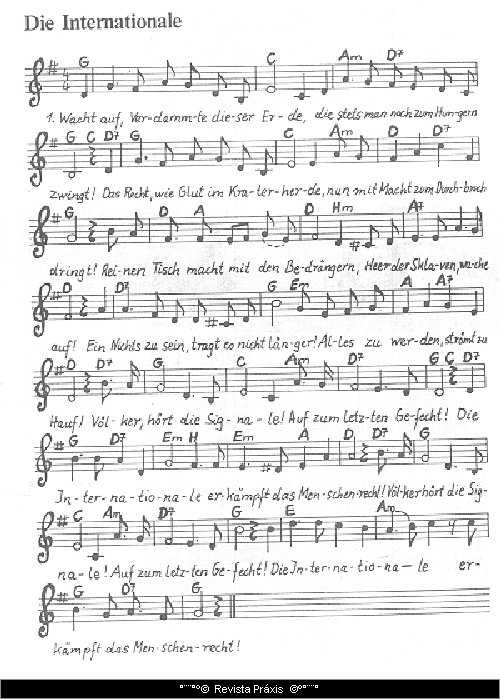 Die Internationale
G C Am D7
1. Wacht auf, Ver-damm-te die-ser Er-de, die stets man noch zum Hungern
G C D7 G C Am D D7
zwingt! Das Recht, wie Glut im Kra-ter-her-de, nun mit Macht zum Durch-bruch
G D A D Hm A7
dringt! Rei-nen Tisch macht mit den Be-drängern, Heer der Skla-ven, wa-che
D D7 G Em A A7
auf! Ein Nichts zu sein, tragt es nicht län-ger! Al-les zu wer-den, strömt zu
D D7 G C Am D7 G C D7
Hauf! Völ-ker, hört die Sig-na-le! Auf zum letz-ten Ge-fecht! Die
G D7 Em H Em A D D7 G
In-ter-na-tio-na-le er-kämpft das Men-schen-recht! Völ-ker hört die Sig-
C Am D7 G E Am
na-le! Auf zum letz-ten Ge-fecht! Die In-ter-na-tio-na-le er-
G D7 G
kämpft das Men-schen-recht!
© Revista Práxis ©